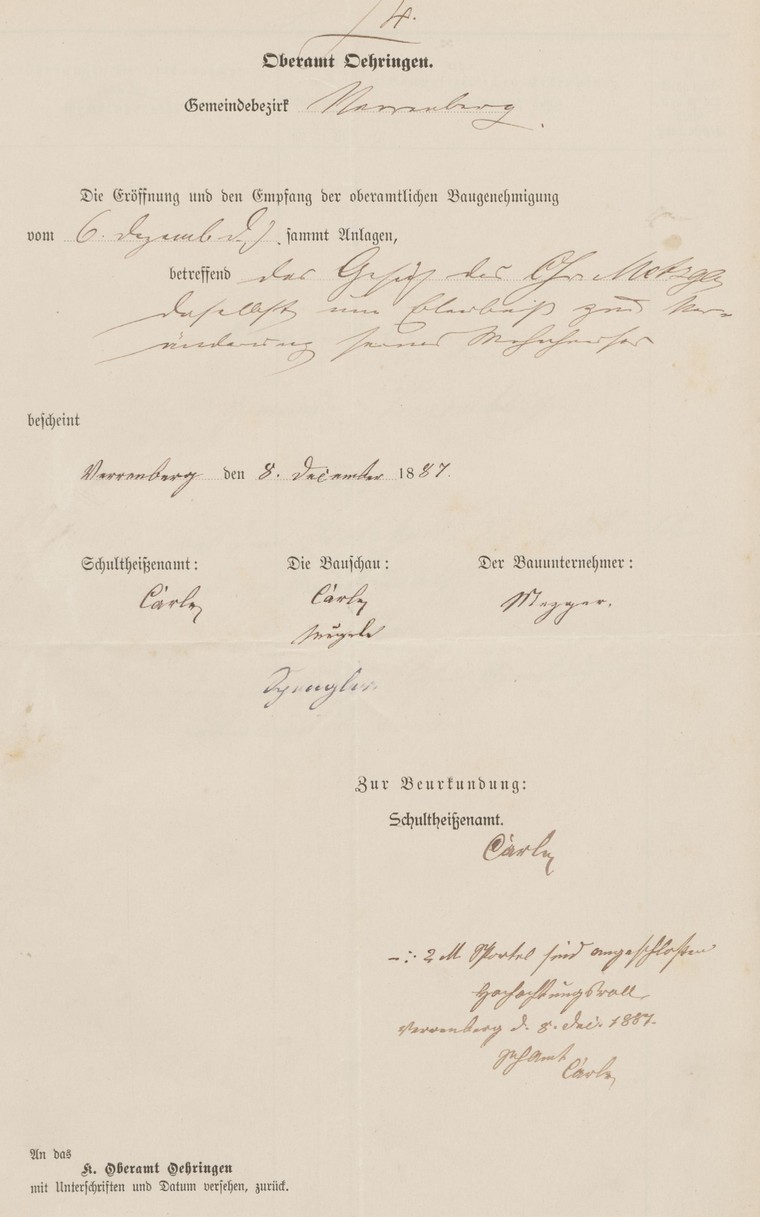 4.
Oberamt Oehringen.
Gemeindebezirk Verrenberg.
Die Eröffnung und den Empfang der oberamtlichen Baugenehmigung
vom 6. Dezemb. d. J. sammt Anlagen,
betreffend das Gesuch des Chr. Metzger
daselbst um Erlaubniß zur Ver=
änderung seines Wohnhauses
bescheint
Verrenberg den 8. December 1887.
Schultheißenamt: Die Bauschau: Der Bauunternehmer:
Cärle Cärle Mezger.
Spengler
Zur Beurkundung:
Schultheißenamt.
Cärle
-:. 2 M Sportel sind angeschlossen
Hochachtungsvoll
Verrenberg d. 8. Dec. 1887.
SchAmt
Cärle
An das
K. Oberamt Oehringen
mit Unterschriften und Datum versehen, zurück.